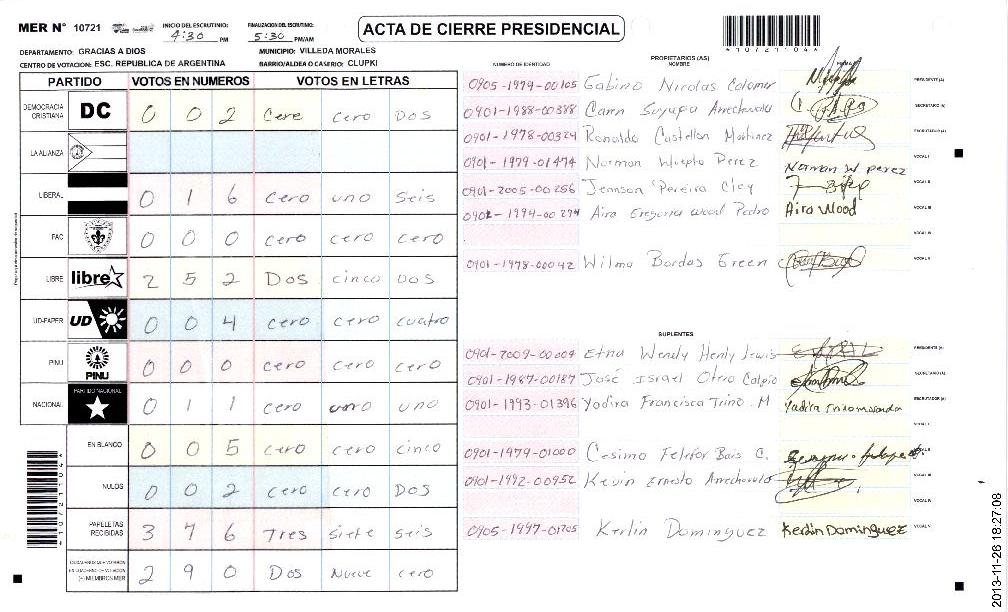 MER N° 10721 INICIO DEL ESCRUTINIO: 4:30 PM FINALIZACION DEL ESCRUTINIO: 5:30 PM/AM ACTA DE CIERRE PRESIDENCIAL *10721104*
DEPARTAMENTO: GRACIAS A DIOS MUNICIPIO: VILLEDA MORALES
CENTRO DE VOTACION: ESC. REPUBLICA DE ARGENTINA BARRIO/ALDEA O CASERIO: CLUPKI
PARTIDO VOTOS EN NUMEROS VOTOS EN LETRAS
DEMOCRACIA CRISTIANA DC 0 0 2 Cere cero Dos
LA ALIANZA
LIBERAL 0 1 6 cero uno seis
FAC 0 0 0 cero cero cero
LIBRE libre 2 5 2 Dos cinco Dos
UD-FAPER UD 0 0 4 cero cero cuatro
PINU PINU 0 0 0 cero cero cero
NACIONAL PARTIDO NACIONAL 0 1 1 cero uno uno
EN BLANCO 0 0 5 cero cero cinco
NULOS 0 0 2 cero cero Dos
PAPELETAS RECIBIDAS 3 7 6 Tres siete seis
CIUDADANOS QUE VOTARON EN CUADERNO DE VOTACION (+) MIEMBROS MER 2 9 0 Dos Nueve cero
*10721104*
PROPIETARIOS (AS)
NUMERO DE IDENTIDAD NOMBRE FIRMA
0905-1979-00105 Gabino Nicolas Colomar PRESIDENTE (A)
0901-1988-00388 Suyapa Arrechavola SECRETARIO (A)
0901-1978-00324 Ronaldo Castellon Martinez ESCRUTADOR (A)
0901-1979-01474 Norman Perez Norman W perez VOCAL I
0901-2005-00256 Jennson Pereira Cley VOCAL II
0901-1994-00274 Airo Gregoria wood Pedro Airo Wood VOCAL III
VOCAL IV
0901-1978-00042 Wilma Bordas Green VOCAL V
SUPLENTES
0901-2009-00004 Etna Wendy Henly Lewis PRESIDENTE (A)
0901-1987-00187 José Israel Otero Calpio SECRETARIO (A)
0901-1993-01396 Yadira Francisca Trino. M ESCRUTADOR (A)
VOCAL I
0901-1979-01000 Cesimo Felefor Bais C. VOCAL II
0901-1992-00952 Kevin Ernesto Arrechavola VOCAL III
VOCAL IV
0905-1997-01705 Kerlin Dominguez Kerlin Dominguez VOCAL V
2013-11-26 18:27:08